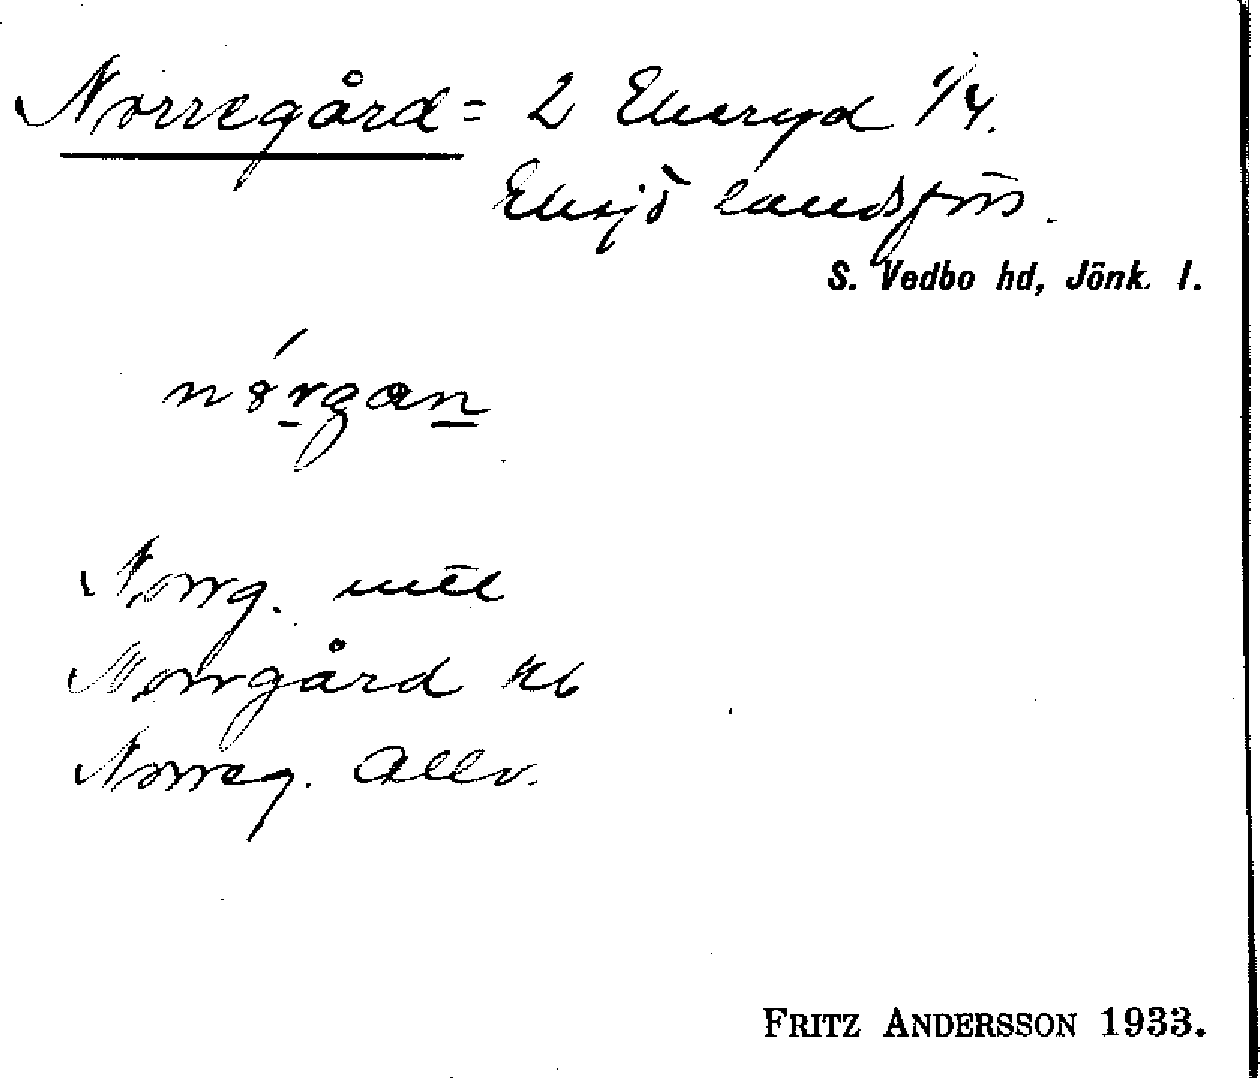 Norregård = 2 Ekeryd 1/4.
Eksjö landsförs.
S. Vedbo hd, Jönk. l.
nórgan
Norrg. utt
Norrgård kb
Norreg. Allv.
FRITZ ANDERSSON 1933.